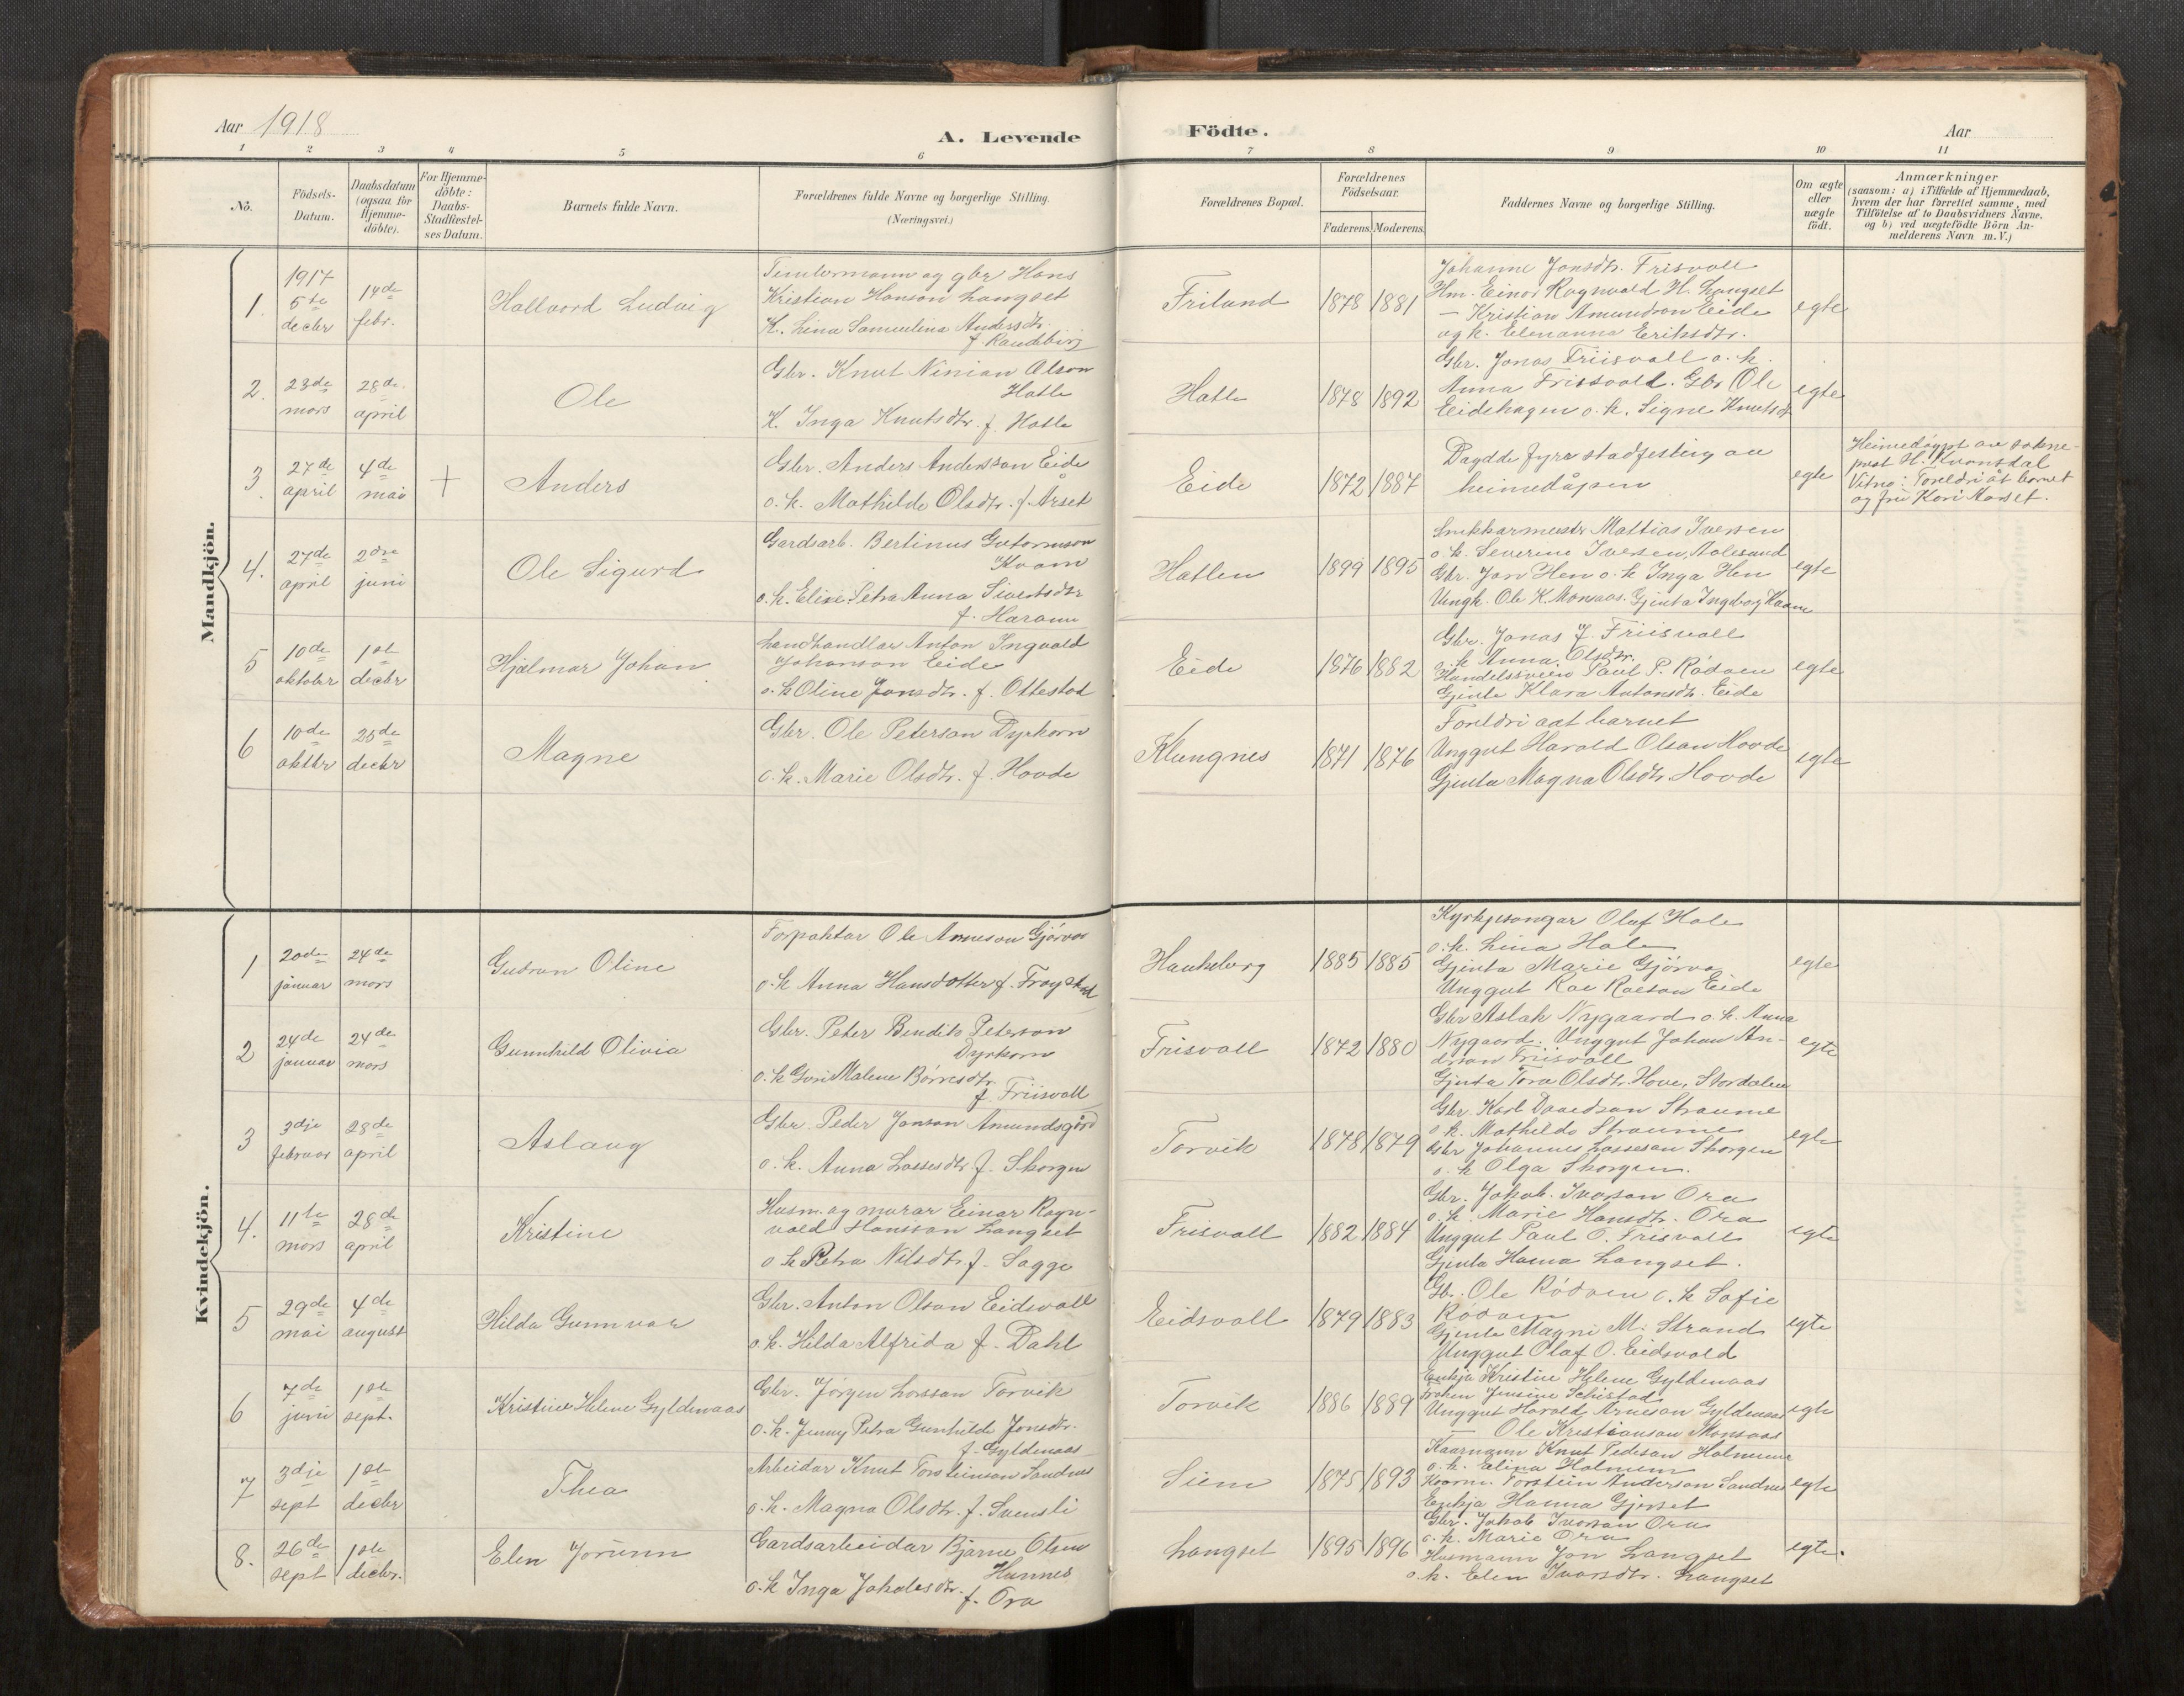 Aar 1918
A. Levende
Födte.
Aar
1 2 3 4 5 6 7 8 9 10 11
No.
Födsels-
Datum.
Daabsdatum
(ogsaa for
Hjemme-
döbte).
For Hjemme-
döbte:
Daabs-
Stadfæstel-
ses Datum.
Barnets fulde Navn.
Forældrenes fulde Navne og borgerlige Stilling.
(Næringsvei.)
Forældrenes Bopæl.
Forældrenes
Födselsaar.
Faderens. Moderens.
Faddernes Navne og borgerlige Stilling.
Om ægte
eller
uægte
födt.
Anmærkninger
(saasom: a) i Tilfælde af Hjemmedaab,
hvem der har forrettet samme, med
Tilföielse af to Daabsvidners Navne,
og b) ved uægtefödte Börn An-
melderens Navn m.V.)
Mandkjön.
1.
1917
5te
decbr
14de
febr.
Hallvard Ludvig
Timbermann og gbr Hans
Kristian Hanson Langset
K. Lina Samueline Andersdtr.
Frilund
1878 1881
Johanne Jonsdtr. Frisvoll
Hm. Einar Ragnvald H. Langset
— Kristian Amundson Eide
og k. Elenanna Eriksdtr.
egte
2.
23de
mars
28de
april
Ole
Gbr. Knut Ninian Olson
Hatle
K. Inga Knutsdtr. f. Hatle
Hatle
1878 1892
Gbr. Jonas Friisvoll o. k.
Anna Frisvoll. Gbr Ole
Eidehagen o. k. Signe Knutsdt
egte
3.
27de
april
4de
mai
+
Anders
Gbr. Anders Andersson Eide
o. k. Mathilde Olsdtr. f. Årset
Eide
1872 1887
Dagdde fyre stadfesting av
heimedåpen
egte
Heimedøypt av sokne-
prest H. Kvansdal
Vitne: Foreldri åt barnet
og fru Kari Aarset.
4.
27de
april
2dre
juni
Ole Sigurd
Gardsarb. Bertinus Gutormson
Kvam
o. k. Elise Petra Anna Sivertsdtr
f. Haram
Hatlen
1899 1895
Snikkarmeister Mattias Iversen
o. k. Severine Iversen, Aalesund
Gbr. Jon Hen o. k Inga Hen
Ungk. Ole K. Monsaas. Gjenta Ingeborg Kvam
egte
5
10de
oktober
1ste
decbr
Hjalmar Johan
Landhandlar Anton Ingvald
Johanson Eide
o. k Oline Jonsdtr. f. Ottestad
Eide
1876 1882
Gbr. Jonas J. Friisvoll
o. k Anna Olsdtr.
Handelssvein Paul P. Rödven
Gjenta Klara Antonsdtr. Eide
egte
6
10de
oktbr
25de
decbr
Magne
Gbr. Ole Peterson Dyrkorn
o. k. Marie Olsdtr. f. Hovde
Klungnes
1871 1876
Foreldri aat barnet
Unggut Harald Olson Hovde
Gjenta Magna Olsdtr. Hovde
egte
Kvindekjön.
1
20de
januar
24de
mars
Gudrun Oline
Forpaktar Ole Arneson Gjörva
o. k Anna Hansdotter f. Frøystad
Haukeberg
1885 1885
Kyrkjesongar Olaf Hole
o. k. Lina Hole
Gjenta Marie Gjörva
Unggut Roe Roeson Eide
egte
2
24de
januar
24de
mars
Gunnhild Olivia
Gbr. Peter Bendik Peterson
Dyrkorn
o. k Guri Malene Börresdtr.
f. Friisvoll
Frisvoll
1872 1880
Gbr Aslak Nygaard o. k. Anna
Nygaard. Unggut Johan An-
derson Friisvoll
Gjenta Tora Olsdtr. Hove, Stordalen
egte
3
3dje
februar
28de
april
Aslaug
Gbr. Peder Jonson Amundsgård
o. k. Anna Lassesdtr. f. Skorgen
Torvik
1878 1879
Gbr. Karl Davidson Straume
o. k. Mathilde Straume
Gbr Johannes Lasseson Skorgen
o. k Olga Skorgen.
egte
4.
11te
mars
28de
april
Kristine
Husm. og murar Einar Ragn-
vald Hansson Langset
o k Petra Nilsdtr. f. Sogge
Frisvoll
1882 1884
Gbr. Jakob Ivarson Ora
o. k. Marie Hansdtr. Ora
Unggut Paul O. Frisvoll
Gjenta Hanna Langset.
egte
5
29de
mai
4de
august
Hilda Gunnvor
Gbr. Anton Olson Eidsvoll
o. k. Hilda Alfrida f. Dahl
Eidsvoll
1879 1883
Gb. Ole Rödven o. k Sofie
Rödven
Gjenta Magni M. Strand
Unggut Olaf O. Eidsvold
egte
6
7de
juni
1ste
sept.
Kristine Helene Gyldenaas
Gbr. Jörgen Larsson Torvik
o. k. Jenny Petra Gunhilde Jonsdtr.
f. Gyldenaas
Torvik
1886 1889
Enkja Kristine Helene Gyldenaas
Fröken Jensine Schistad
Unggut Harald Arneson Gyldenaas
— Ole Kristianson Monsaas
egte
7
3dje
sept
1ste
decbr
Thea
Arbeidar Knut Torsteinson Sandnes
o. k. Magna Olsdtr. f. Svensli
Siem
1875 1893
Kaarmann Knut Pederson Holmem
o. k. Elina Holmem
Kaarm. Torstein Anderson Sandnes
Enkja Hanna Gjerset
egte
8.
26de
sept
1ste
decbr.
Elen Jorunn
Gardsarbeidar Bjarne Olsen
Hunnes
o. k Inga Jakobsdtr. f. Ora
Langset
1895 1896
Gbr. Jakob Ivarson Ora
o. k. Marie Ora
Husmann Jon Langset
o. k. Elen Ivarsdtr. Langset
egte.